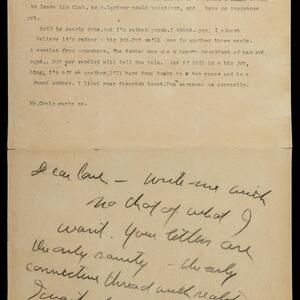 to leave him flat, as R.Lardner would point out, and have no insurance
yet.
Brit is nearly done. and I'm rather proud. I think.. yes, I
believe it's rather a big job. But we'll see in another three weeks.
A verdict from somewhere. The damned man ate a hearty breakfast of ham and
eggs.. But verdict will tell the tale. And if Brit is a big job,
bing, I'm off on another. I'll have four books in two years and be a
Famed Author. I liked your feverish boost. You
Mr.Craig
Dear Love – write me much
no that of what I
want. Your letters are
the only sanity – the only
connective thread with reality
I want